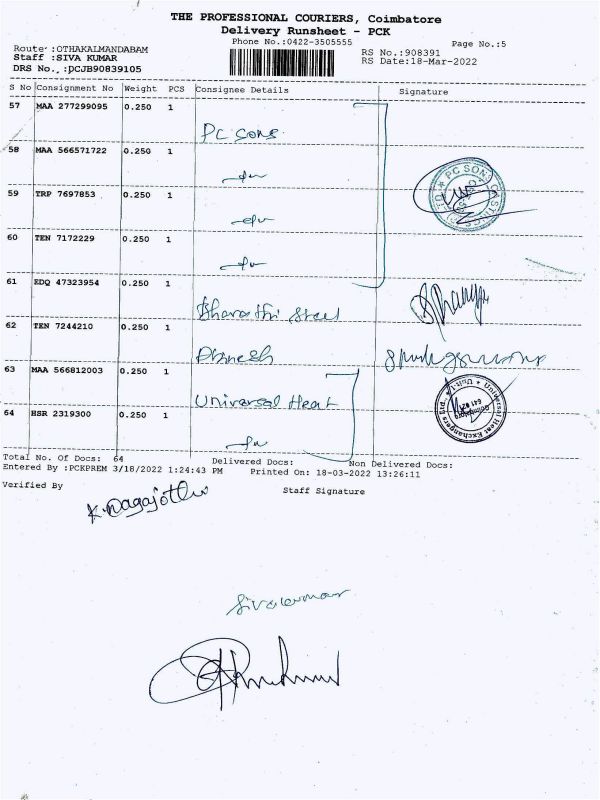 THE PROFESSIONAL COURIERS, Coimbatore
Delivery Runsheet - PCK
Phone No.:0422-3505555
Page No.:5
Route :OTHAKALMANDABAM
RS No.:908391
Staff :SIVA KUMAR
RS Date:18-Mar-2022
DRS No.,:PCJB90839105
S No Consignment No Weight PCS Consignee Details Signature
57 MAA 277299095 0.250 1
PC Sons
58 MAA 566571722 0.250 1
59 TRP 7697853 0.250 1
60 TEN 7172229 0.250 1
61 EDQ 47323954 0.250 1
Bharathi Steel
62 TEN 7244210 0.250 1
Dhinesh
63 MAA 566812003 0.250 1
Universal Heat
64 HSR 2319300 0.250 1
Universal Heat Exchangers Ltd. Unit-I
Coimbatore
Total No. Of Docs: 64 Delivered Docs: Non Delivered Docs:
Entered By :PCKPREM 3/18/2022 1:24:43 PM Printed On: 18-03-2022 13:26:11
Verified By Staff Signature
K. Nagajothi
Sivakumar